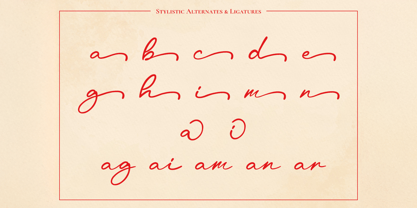 Stylistic Alternates & Ligatures
a b c d e
g h i m n
a i
ag ai am an ar